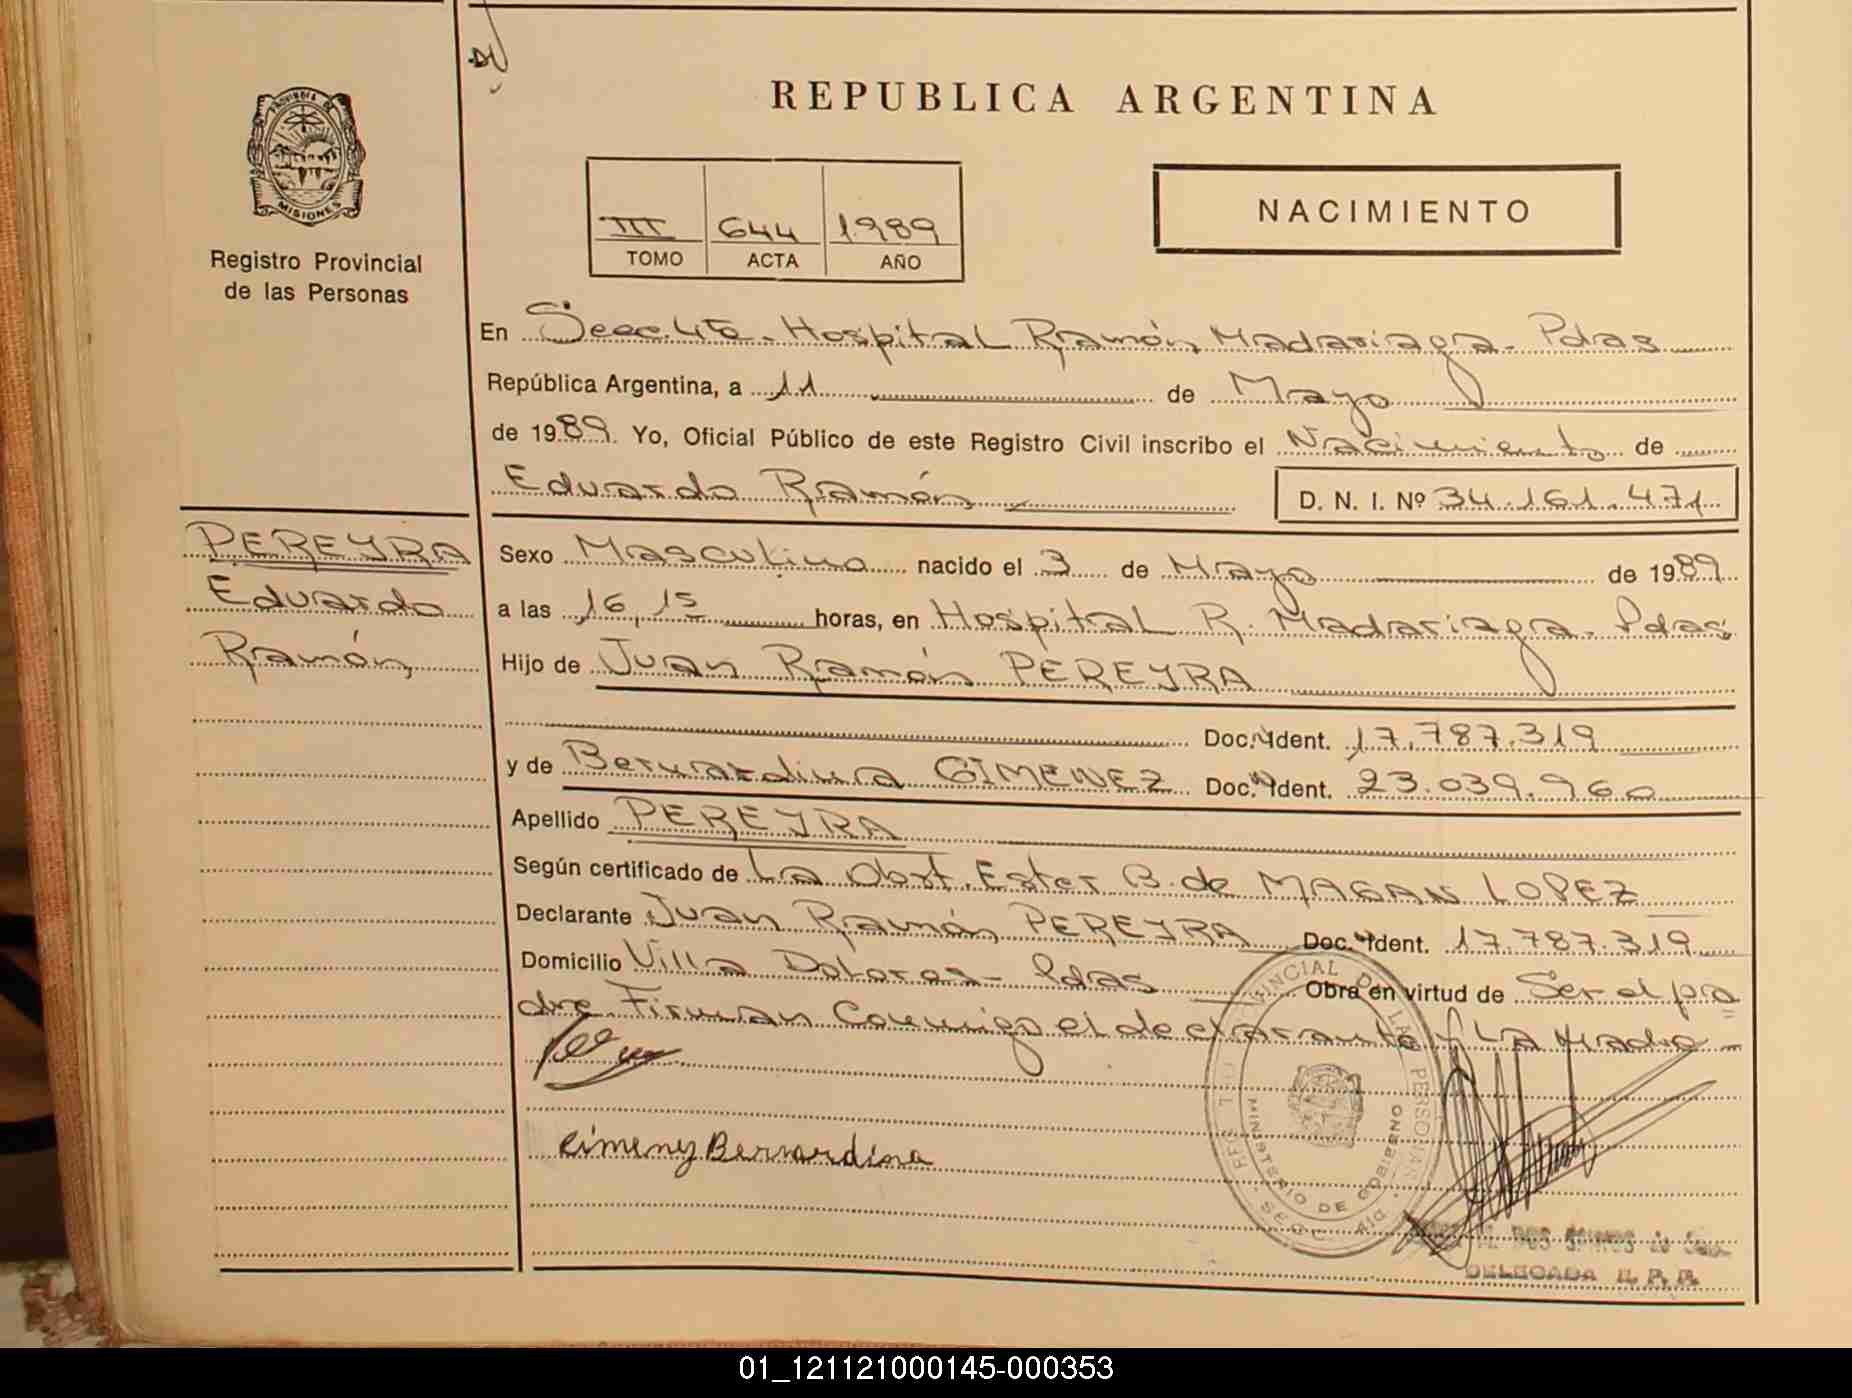 REPUBLICA ARGENTINA
PROVINCIA DE
MISIONES
Registro Provincial
de las Personas
III 644 1989
TOMO ACTA AÑO
NACIMIENTO
En Secc. 4ta. Hospital Ramón Madariaga - Pdas
República Argentina, a 11 de Mayo
de 1989. Yo, Oficial Público de este Registro Civil inscribo el Nacimiento de
Eduardo Ramón D. N. I. Nº 34.161.471
PEREYRA
Eduardo
Ramón
Sexo Masculino nacido el 3 de Mayo de 1989
a las 16,15 horas, en Hospital R. Madariaga - Pdas
Hijo de Juan Ramón PEREYRA
Doc. Ident. 17.787.319
y de Bernardina GIMENEZ Doc. Ident. 23.039.960
Apellido PEREYRA
Según certificado de La Obst. Ester B. de MAGAN LOPEZ
Declarante Juan Ramón PEREYRA Doc. Ident. 17.787.319
Domicilio Villa Dolores - Pdas Obra en virtud de Ser el pa
dre. Firman Conmigo el declarante y La Madre
Gimenez Bernardina
MINISTERIO DE GOBIERNO
DELEGADA R. P. P.
01_121121000145-000353